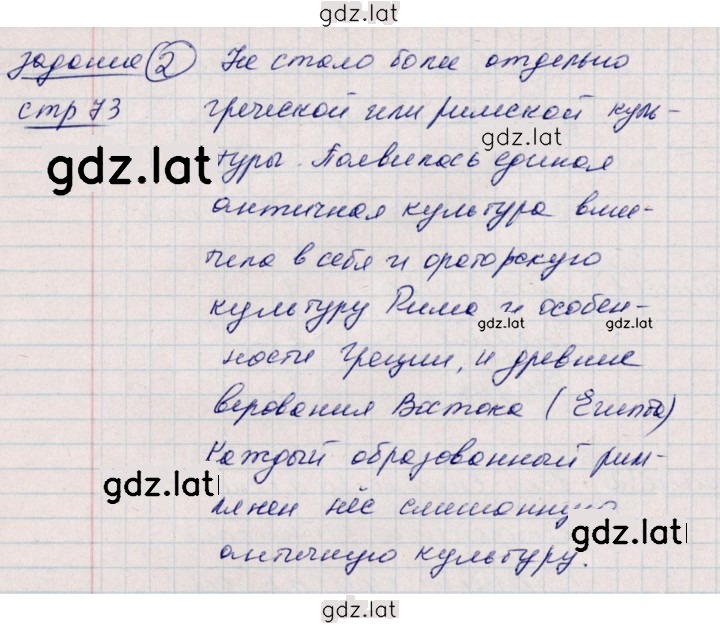 gdz.lat
задание 2 Не стало более отдельно
стр 73 греческой или римской куль-
gdz.lat
gdz.lat
туры. Появилась единая
античная культура вме-
тила в себя и ораторскую
культуру Рима и особен-
gdz.lat gdz.lat
ности Греции, и древние
верования Востока (Египта)
Каждый образованный рим-
gdz.lat
лянен нёс смешанную
gdz.lat
античную культуру.
gdz.lat